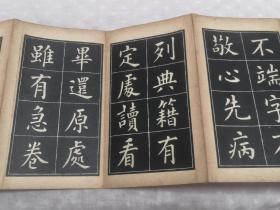 不端字
敬心先病
列典籍有
定處讀看
畢還原處
雖有急卷